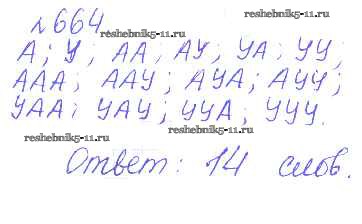 №664
reshebnik5-11.ru
А; У; АА; АУ; УА; УУ;
ААА; ААУ; АУА; АУУ;
УАА; УАУ; УУА; УУУ.
reshebnik5-11.ru
reshebnik5-11.ru
Ответ: 14 слов.
reshebnik5-11.ru